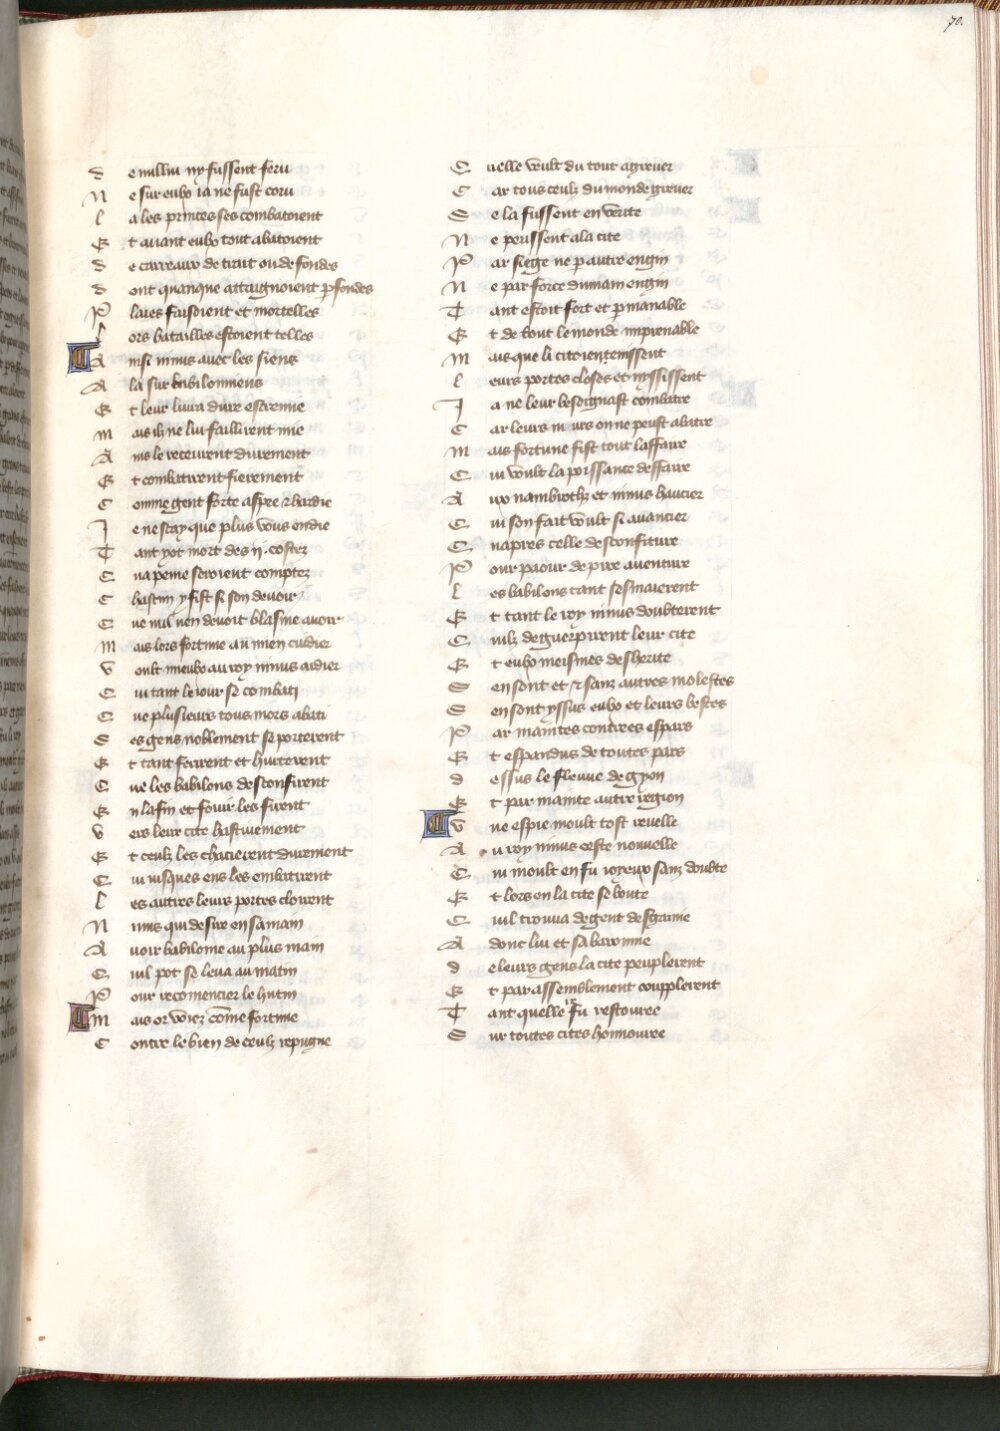 70.
De nullui ny fussent feru
Ne sur eulx ia ne fust coru
La les princes ses combatoient
Et auant eulx tout abatoient
De carreaux de trait ou de fondes
Dont quanque attaignoient pfondes
Plaies faisoient et mortelles
Lors batailles estoient telles
Ainsi ninus auec les siens
Ala sur babiloniens
Et leur liura dure escremie
Mais ilz ne lui faillirent mie
Ains le receurent durement
Et combatirent fierement
Comme gent forte aspre et hardie
Je ne scay que plus vous en die
Tant yot mort des .ij. costez
Qua peine seroient comptez
Chascun y fist si son deuoir
Que nul nen deuoit blasme auoir
Mais lors fortune au mien cuidier
Voult mieulx au roy ninus aidier
Qui tant le iour se combati
Que plusieurs tous mors abati
Ses gens noblement se porterent
Et tant ferirent et hurterent
Que les babilons desconfirent
En la fin et fouir les firent
Vers leur cite hastiuement
Et ceulx les chacierent durement
Qui iusques ens les embatirent
Les autres leurs portes clouirent
Ninus qui desire en sa main
Auoir babiloine au plus main
Quil pot se leua au matin
Pour recomencier le hutin
Mais or voiez come fortune
Contre le bien de ceulx repugne
Quelle voult du tout agreuer
Car tous ceulx du monde greuer
Se la fussent en verite
Ne peussent a la cite
Par siege ne p autre engin
Ne par force dumain engin
Tant estoit fort et pmanable
Et de tout le monde imprenable
Mais que li citoien tenissent
Leurs portes closes et nyssissent
Ja ne leur besoignast combatre
Car leurs murs on ne peust abatre
Mais fortune fist tout laffaire
Qui voult la poissance deffaire
Aux nambroth et ninus haucier
Qui son fait voult si auancier
Quapres celle desconfiture
Pour paour de pire auenture
Les babilons tant sesmaierent
Et tant le roy ninus doubterent
Quilz deguerpirent leur cite
Et eulx meismes desherite
Sen sont et sanz autres molestes
Sen sont yssus eulx et leurs bestes
Par maintes contrees espars
Et espandus de toutes pars
Dessus le fleuue de gyon
Et par mainte autre region
Vne espie moult tost reuelle
Au roy ninus ceste nouuelle
Qui moult en fu ioyeux sanz doubte
Et lors en la cite se boute
Quil trouua de gent desgarnie
Adonc lui et sa baronnie
De leurs gens la cite peuplerent
Et par assemblement coupplerent
Tant quelle fu restoree
Sur toutes cites honnouree